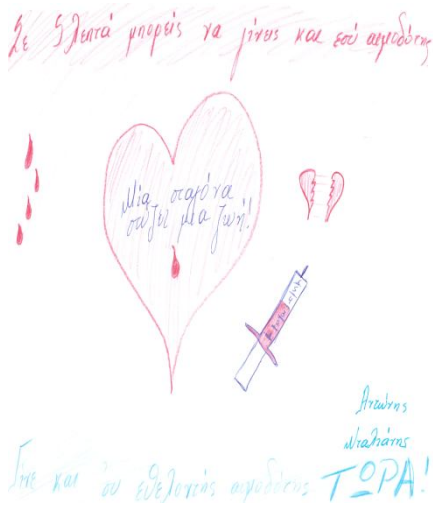 Σε 5 λεπτά μπορείς να γίνεις και εσύ αιμοδότης
Μία σταγόνα
σώζει μια ζωή!
Αντώνης
Νταλιάνης
Γίνε και συ εθελοντής αιμοδότης ΤΩΡΑ!